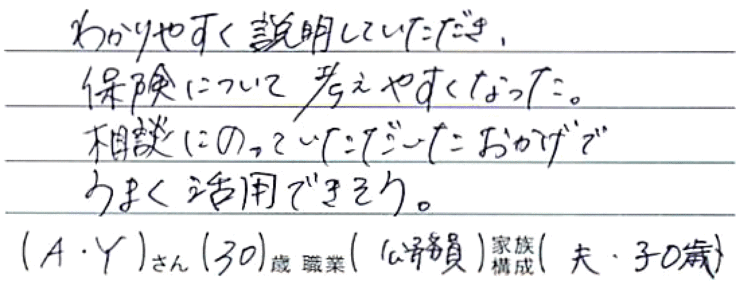 わかりやすく説明していただき、
保険について考えやすくなった。
相談にのっていただいたおかげで
うまく活用できそう。
(A・Y)さん(30)歳 職業(公務員)家族構成(夫・子0歳)